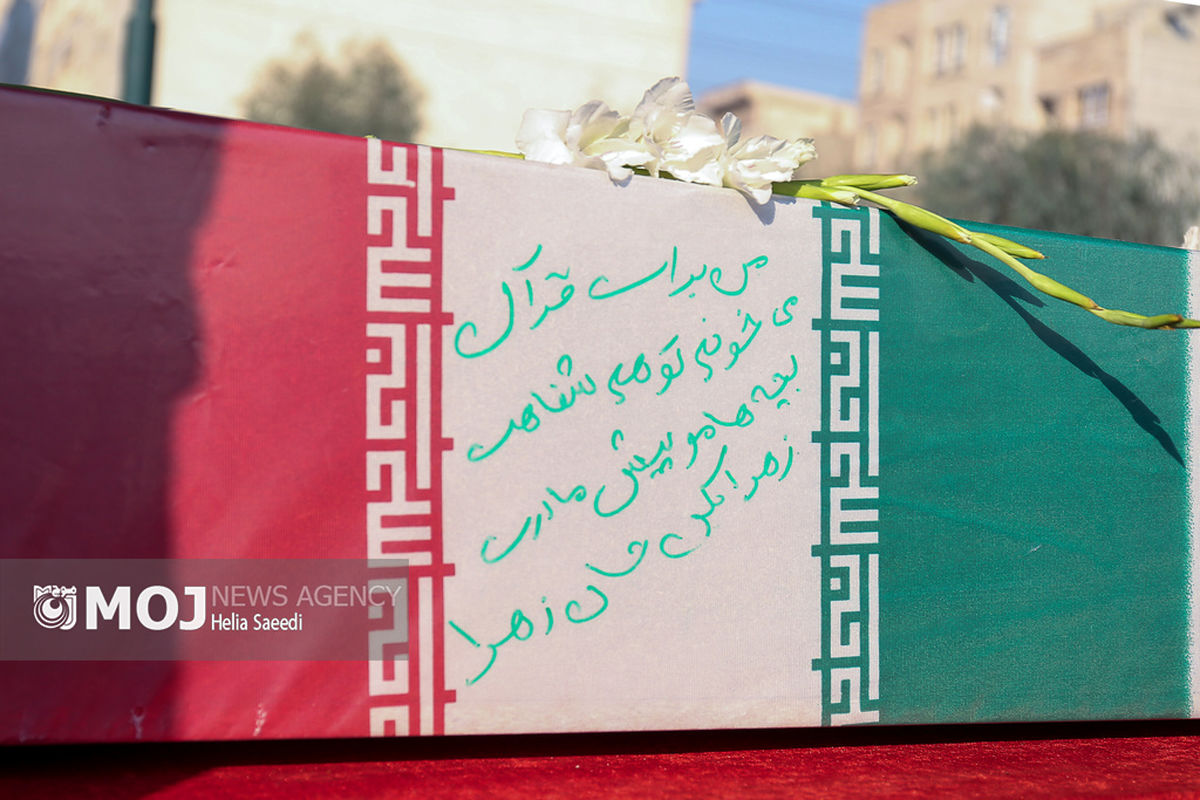 من برات قرآن
می خونم تو هم شفاعت
بچه هامو پیش مادرت
زهرا بکن جان زهرا
موج
MOJ NEWS AGENCY
Helia Saeedi